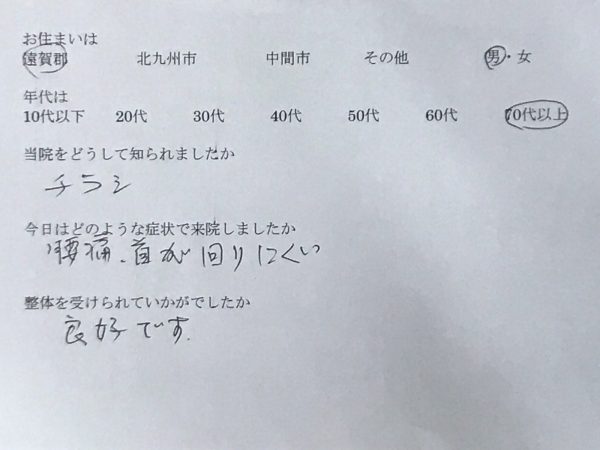 お住まいは
遠賀郡 北九州市 中間市 その他 男・女
年代は
10代以下 20代 30代 40代 50代 60代 70代以上
当院をどうして知られましたか
チラシ
今日はどのような症状で来院しましたか
腰痛、首が回りにくい
整体を受けられていかがでしたか
良好です.